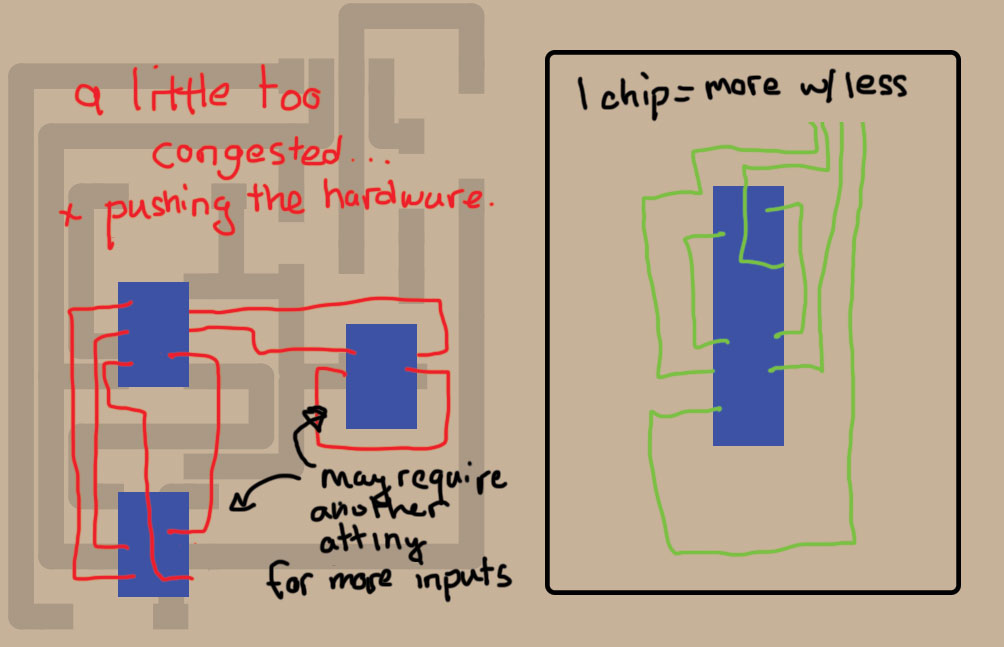 a little too
congested...
+ pushing the hardware.
may require
another
attiny
for more inputs
1 chip = more w/ less